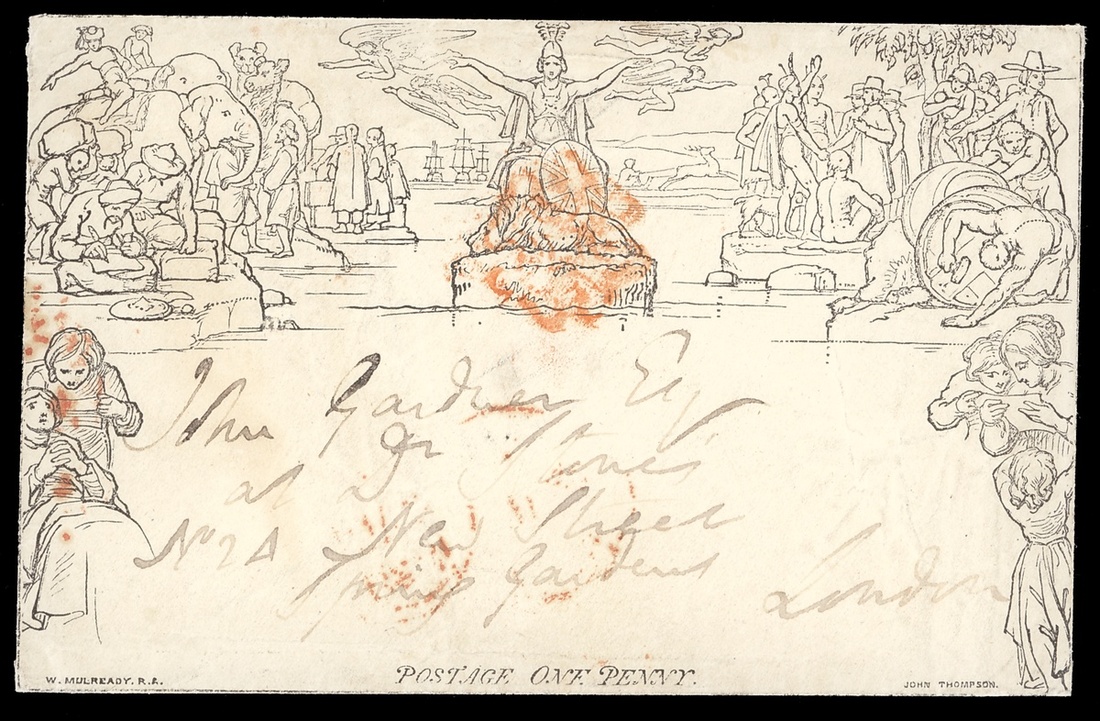 John Gardner Esq
at Dr Stones
No 2A New Street
Spring Gardens
London
W. MULREADY. R.A.
POSTAGE ONE PENNY.
JOHN THOMPSON.